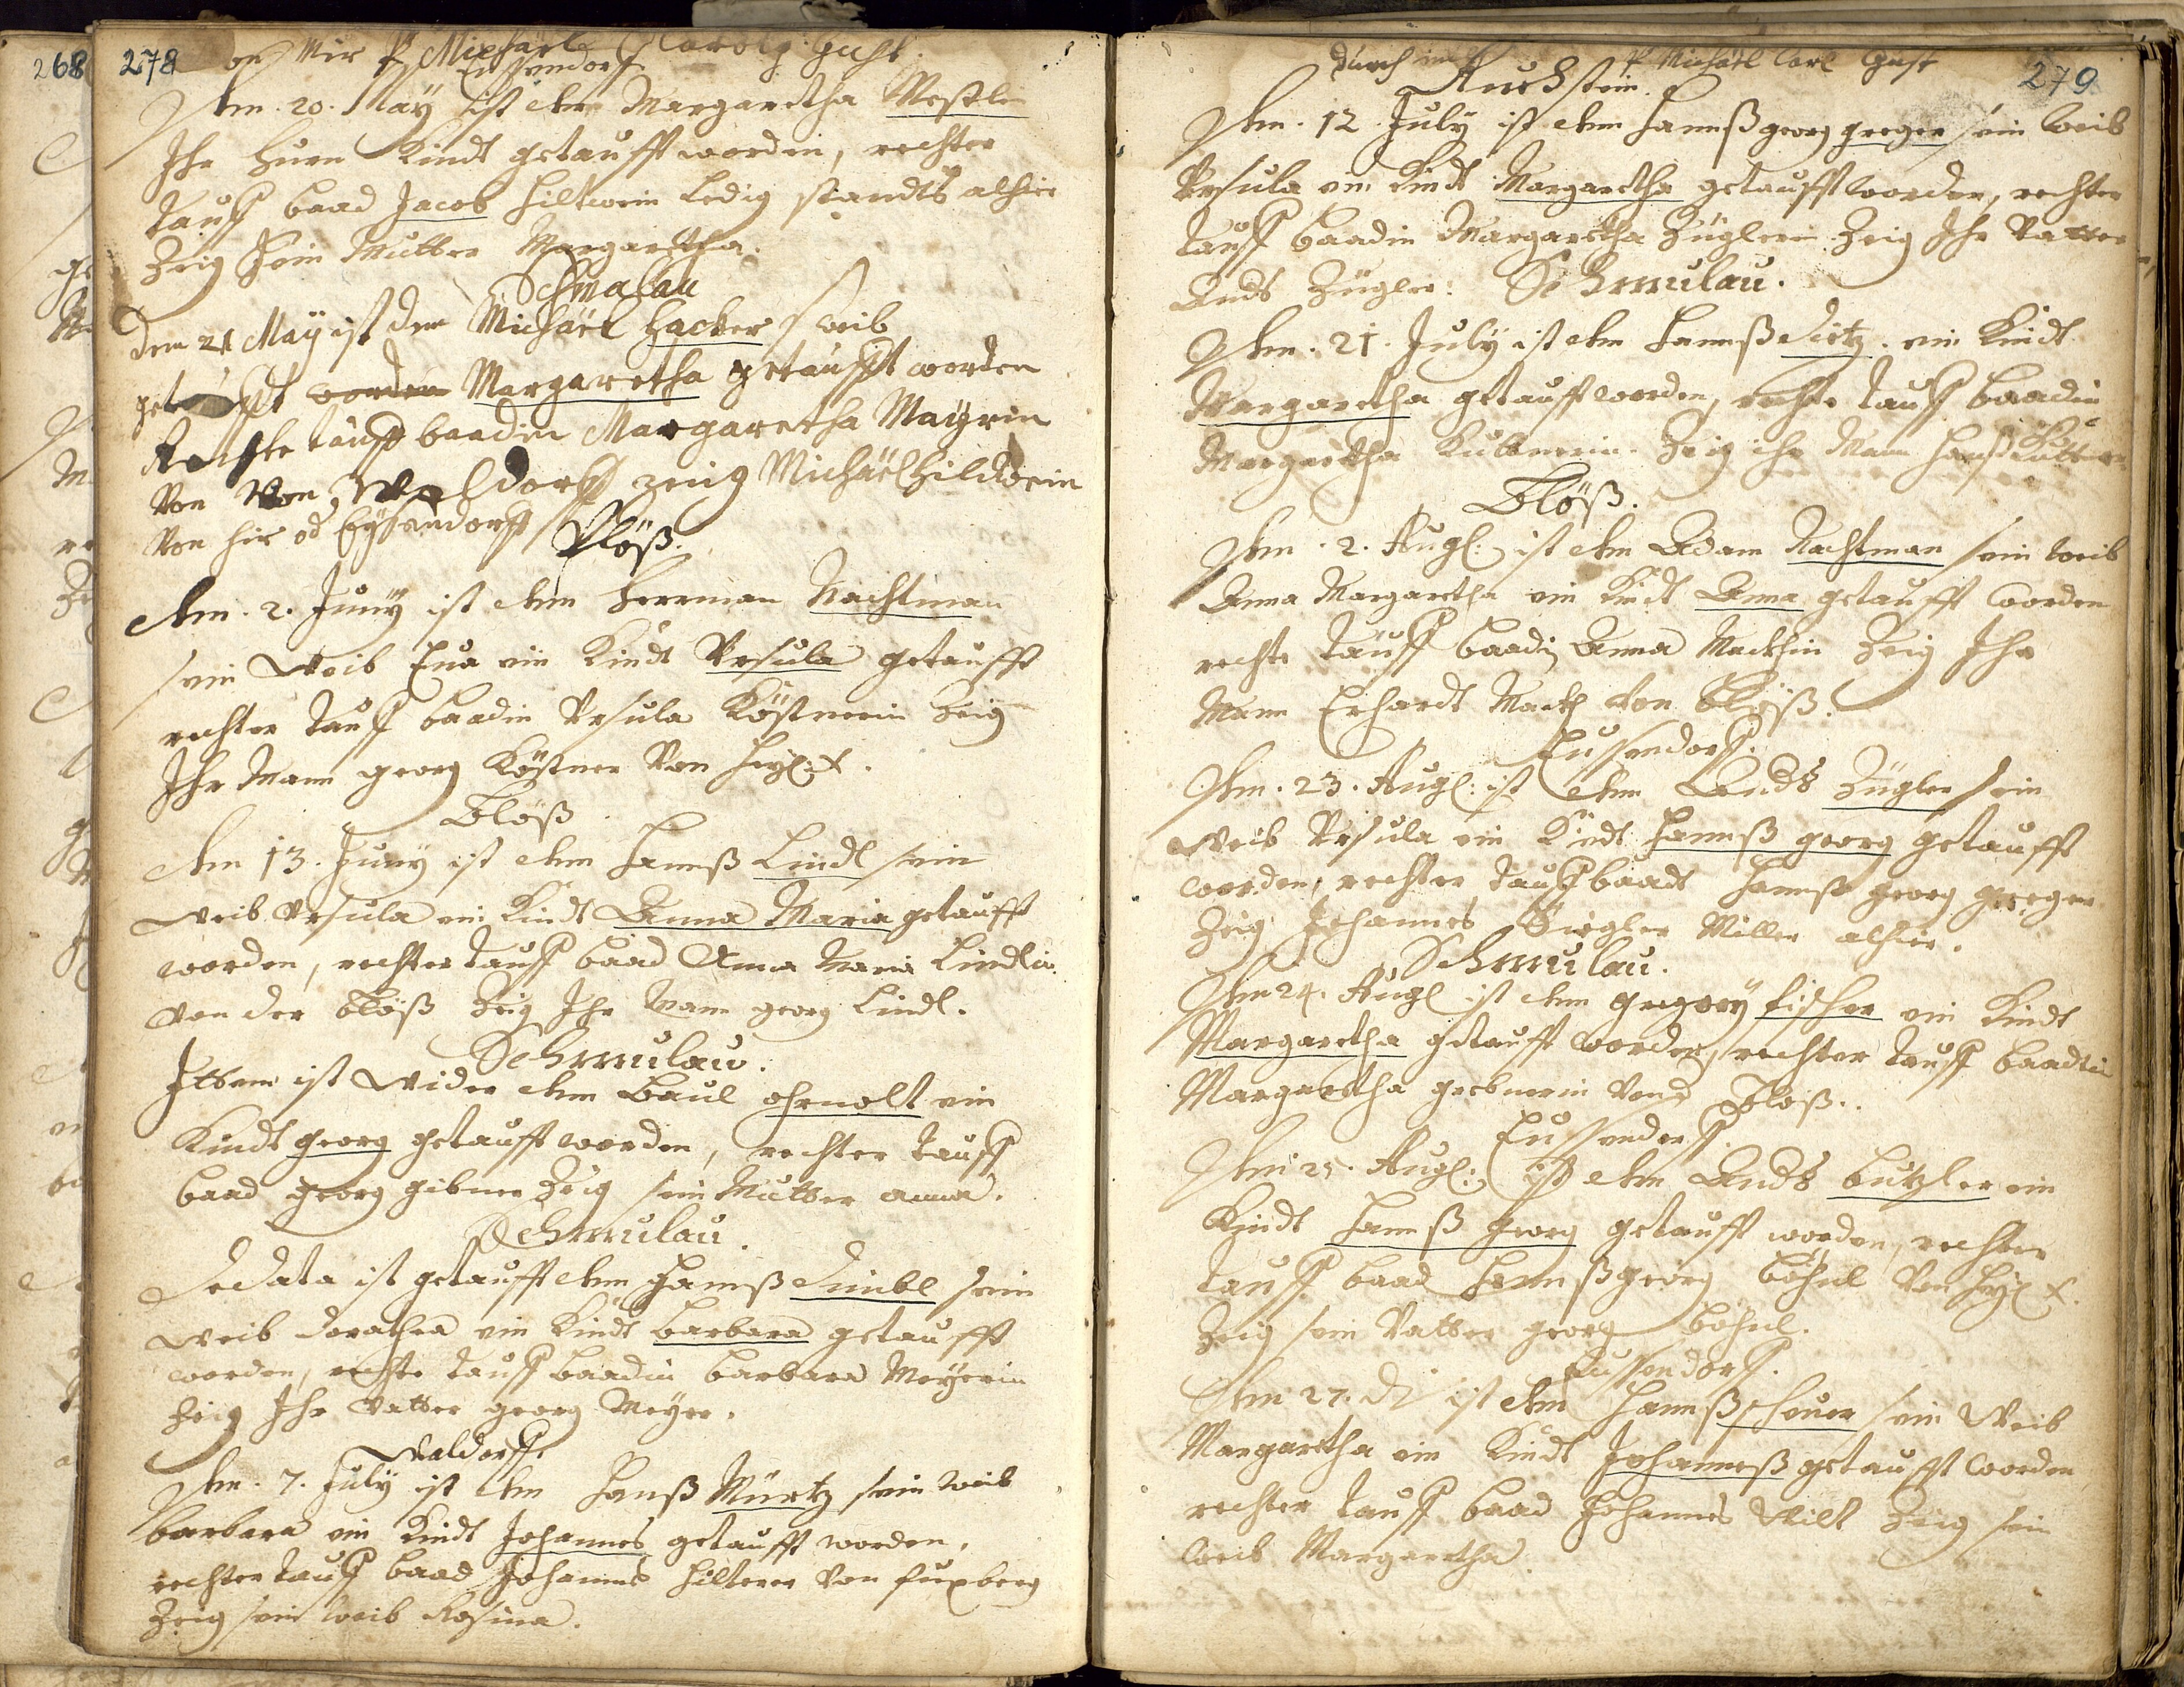 268
278
von Mir P. Michael Carolg. Gust.
Eussendorf.
Den. 20. May ist der Margaretha Westlin
Ihr Hurn Kindt getaufft worden, rechter
tauff baad Jacob Hiltwein ledig standts alhier
Zeig Sein Mutter Margaretha.
Schmalau
den 21 May ist dem Michäel Hacker s weib
getaufft worden Margaretha getaufft worden
Rechte tauff baadin Margaretha Mayrin
Von Von Waldorff zeug Michäel Hildwein
Von hir od Eysendorff
Plöß.
den. 2. Juny ist dem Herrman Nachtman
sein Weib Eua ein Kindt Vrsula getaufft
rechter tauff baadin Vrsula Köstnerin Zeig
Ihr Mann georg Köstner Von Heyl: +.
Blöß
den 13. Juny ist dem Hanß Lindl sein
weib Vrsula ein Kindt Anna Maria getaufft
worden, rechter tauff baad Anna Maria Lindlin
von der Blöß Zeig Ihr Mann georg Lindl.
Schmulau.
Ittem ist wider dem Baul ohrnolt ein
Kindt georg getaufft worden, rechter tauff
baad georg gibner Zeig sein Mutter anna.
Schmulau.
De Data ist getaufft dem Hanß Dimbl sein
weib dorathea ein Kindt barbara getaufft
worden, rechte tauff baadin barbara Meyerin
Zeig Ihr Vatter georg Meyer.
Waldorff.
Den. 7. July ist dem Hanß Mürtz sein weib
barbara ein Kindt Johannes getaufft worden,
rechter tauff baad Johannes Hilterer von fuxberg
Zeig sein weib Rosina.
durch P. Michäel Carl Gust
279
Ruchstein.
Den. 12. July ist dem Hannß georg greger sein weib
Vrsula ein Kindt Margaretha getaufft worden, rechter
tauff baadin Margaretha Züglerin Zeig Ihr Vatter
Andˢ Zügler.
Schmulau.
Den. 21. July ist dem Hannß Dietz. ein Kindt
Margaretha getaufft worden, rechte tauff baadin
Margaretha Zeig ihr Mann Hanß
Blöß.
Den. 2. Augl: ist dem Adam Nachtman sein weib
Anna Margaretha ein Kindt Anna getaufft worden
rechte tauff baadin Anna Mackhin Zeig Ihr
Mann Erhardt Mackh Von Blöß.
Eussendorff.
Den. 23. Augl: ist dem Andˢ Zügler sein
Weib Vrsula ein Kindt Hannß georg getaufft
worden, rechter tauff baadt Hannß georg greger
Zeig Johannes Siegler Miller alhier.
Schmulau.
Den 24. Augl ist dem gregory fischer ein Kindt
Margaretha getaufft worden, rechter tauff baadtin
Margaretha grebnerin Vond Bloß..
Eussendorff.
Den 25. Augl: ist dem Andˢ butzler ein
Kindt Hannß georg getaufft worden, rechter
tauff baad Hannß georg böhnl Von Heyl +.
Zeig sein Vatter georg böhnl.
Eussendorff.
Den 27. D ist dem Hannß scheuer sein Weib
Margaretha ein Kindt Johanneß getaufft worden
rechter tauff baad Johannes Wilt Zeig sein
weib Margaretha